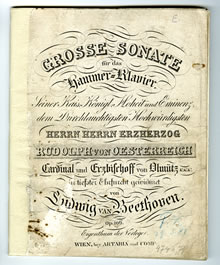 GROSSE SONATE
für das
Hammer-Klavier
Seiner Kais. Königl. Hoheit und Eminenz
dem Durchlauchtigsten Hochwürdigsten
HERRN HERRN ERZHERZOG
RUDOLPH VON OESTERREICH
Cardinal und Erzbischoff von Olmütz
in tiefster Ehrfurcht gewidmet
von
Ludwig van Beethoven.
Op. 106.
Eigenthum der Verleger
WIEN, bey ARTARIA und COMP.